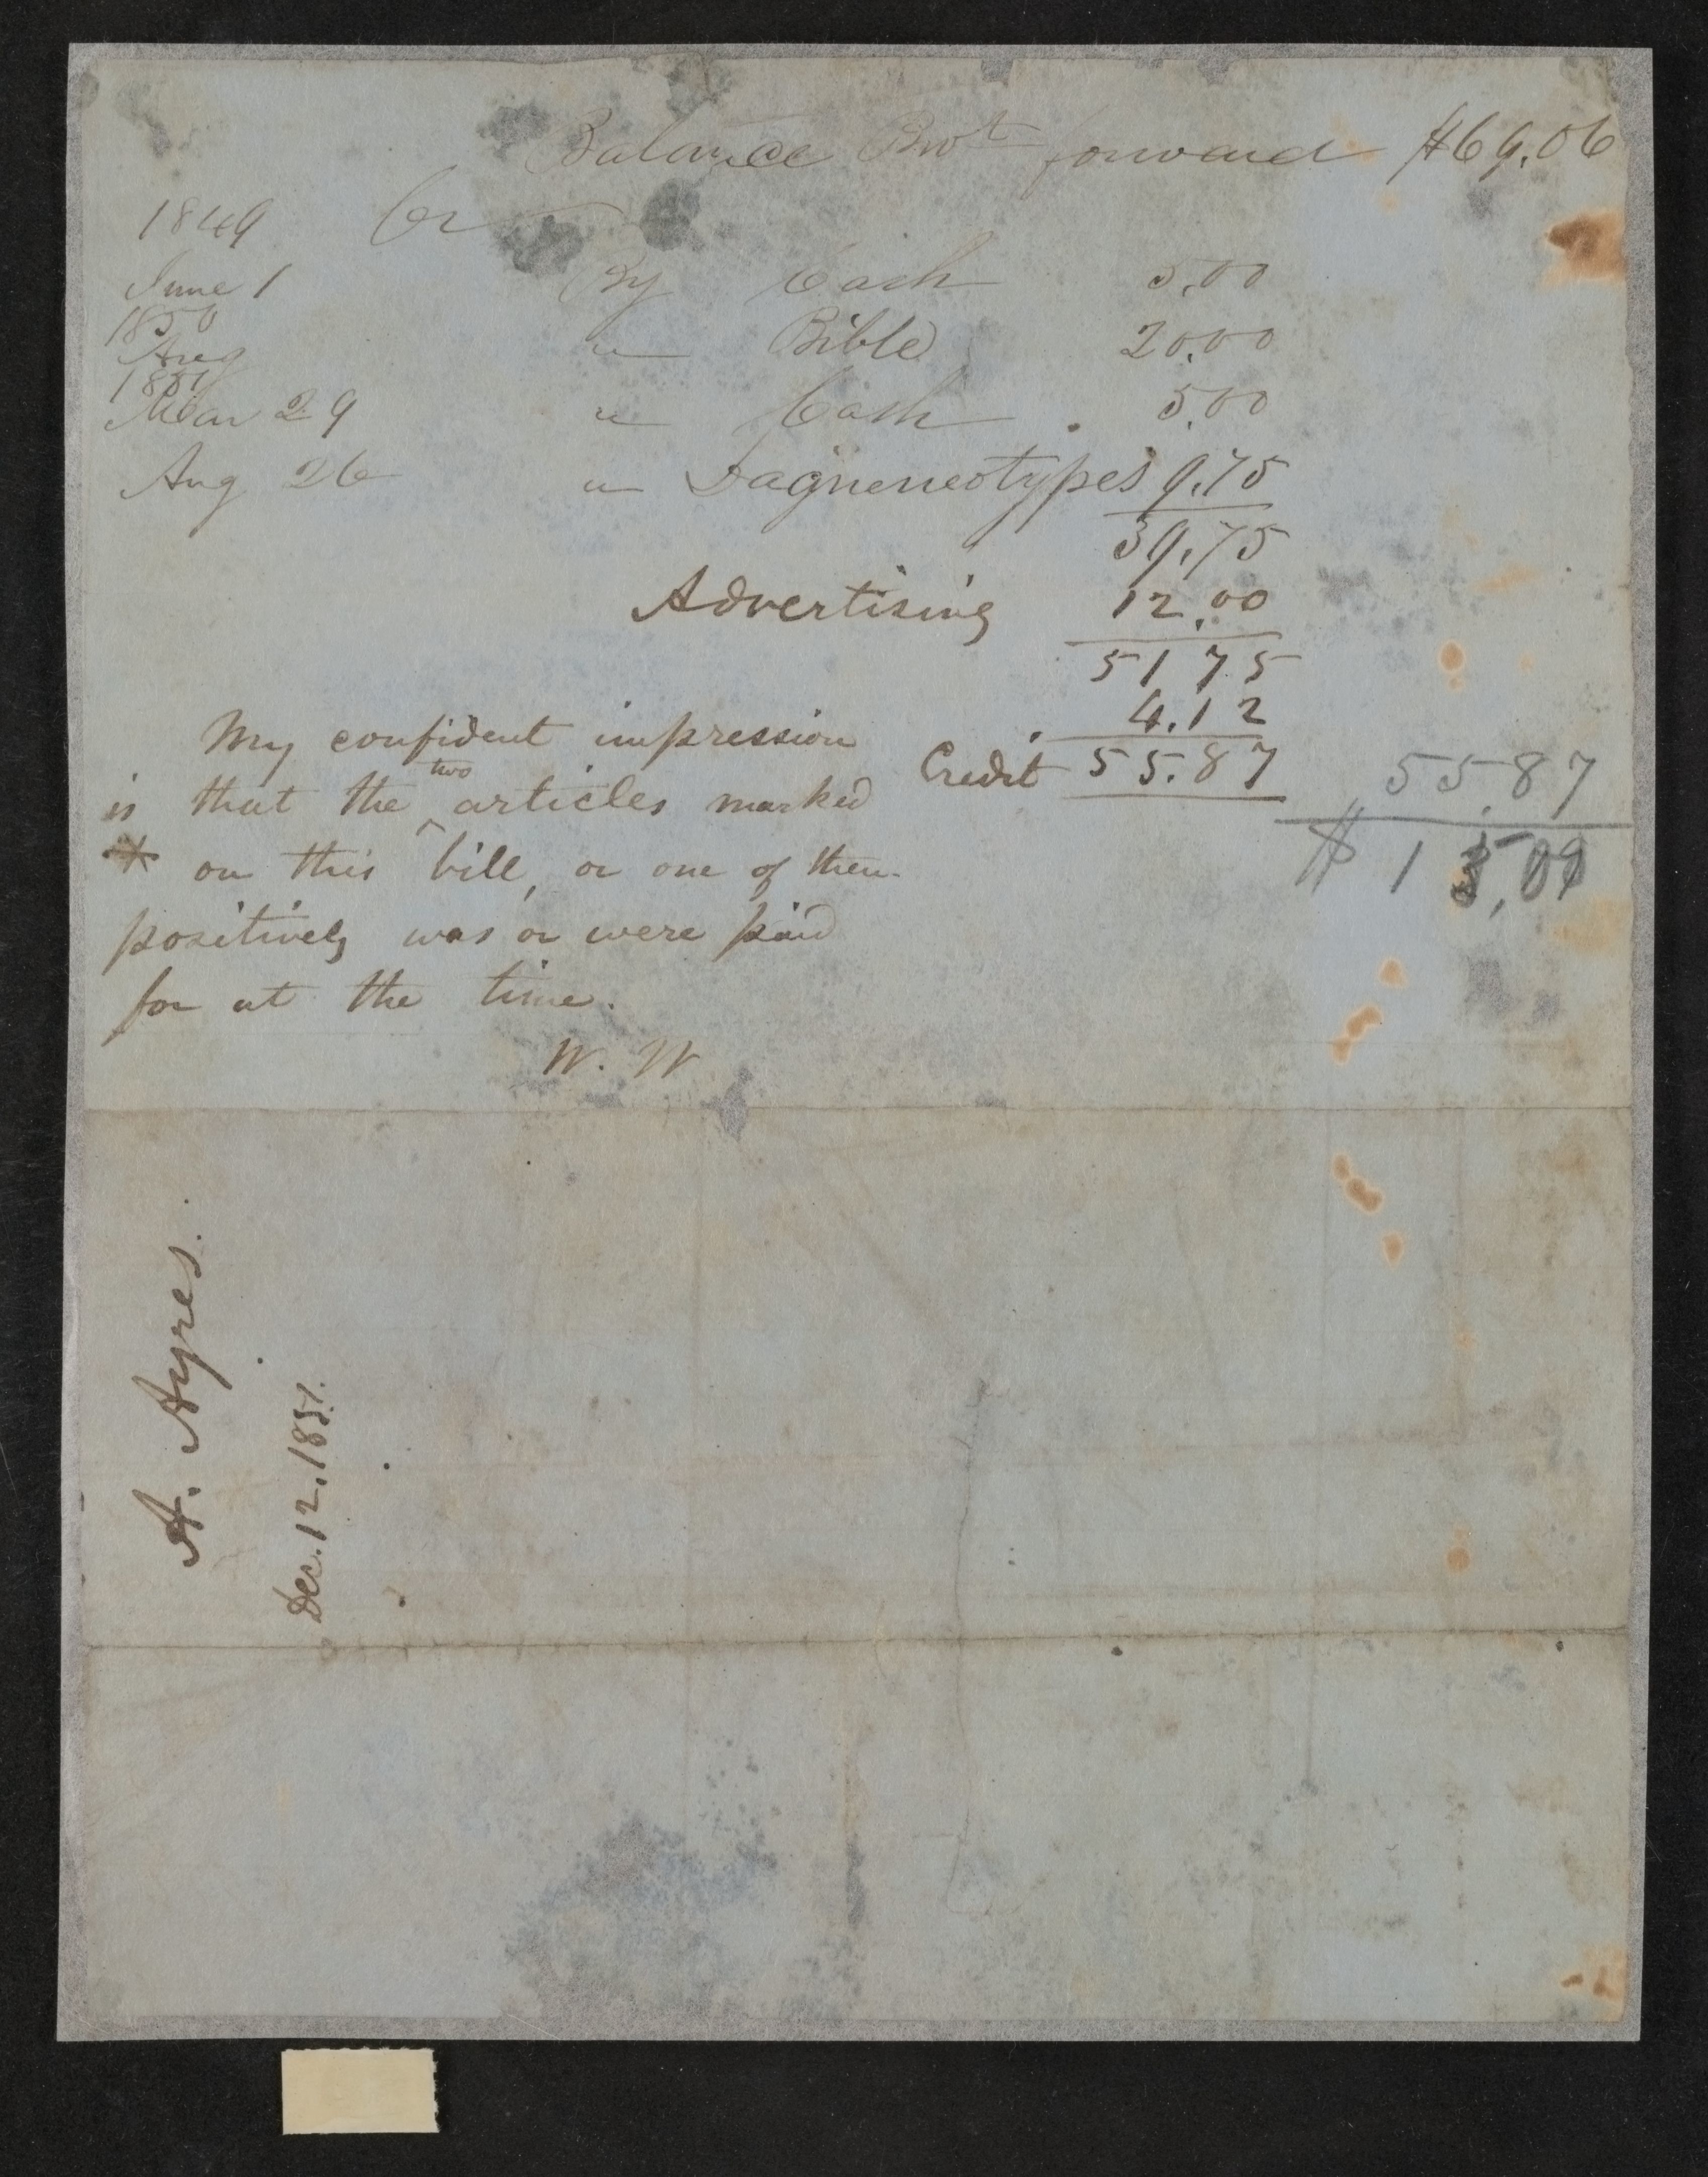 Balance Brot forward $69.06
1849 Cr
June 1 By Cash 5.00
1850
Aug " Bible 20.00
1851
Mar 29 " Cash 5.00
Aug 26 " Daguerreotypes 9.75
39.75
Advertising 12.00
51 75
4.12
Credit 55.87
55.87
$ 1
My confident impression
is that the two articles marked
* on this bill, or one of them
positively was or were paid
for at the time.
W. W
A. Ayres.
Dec. 12, 1851.